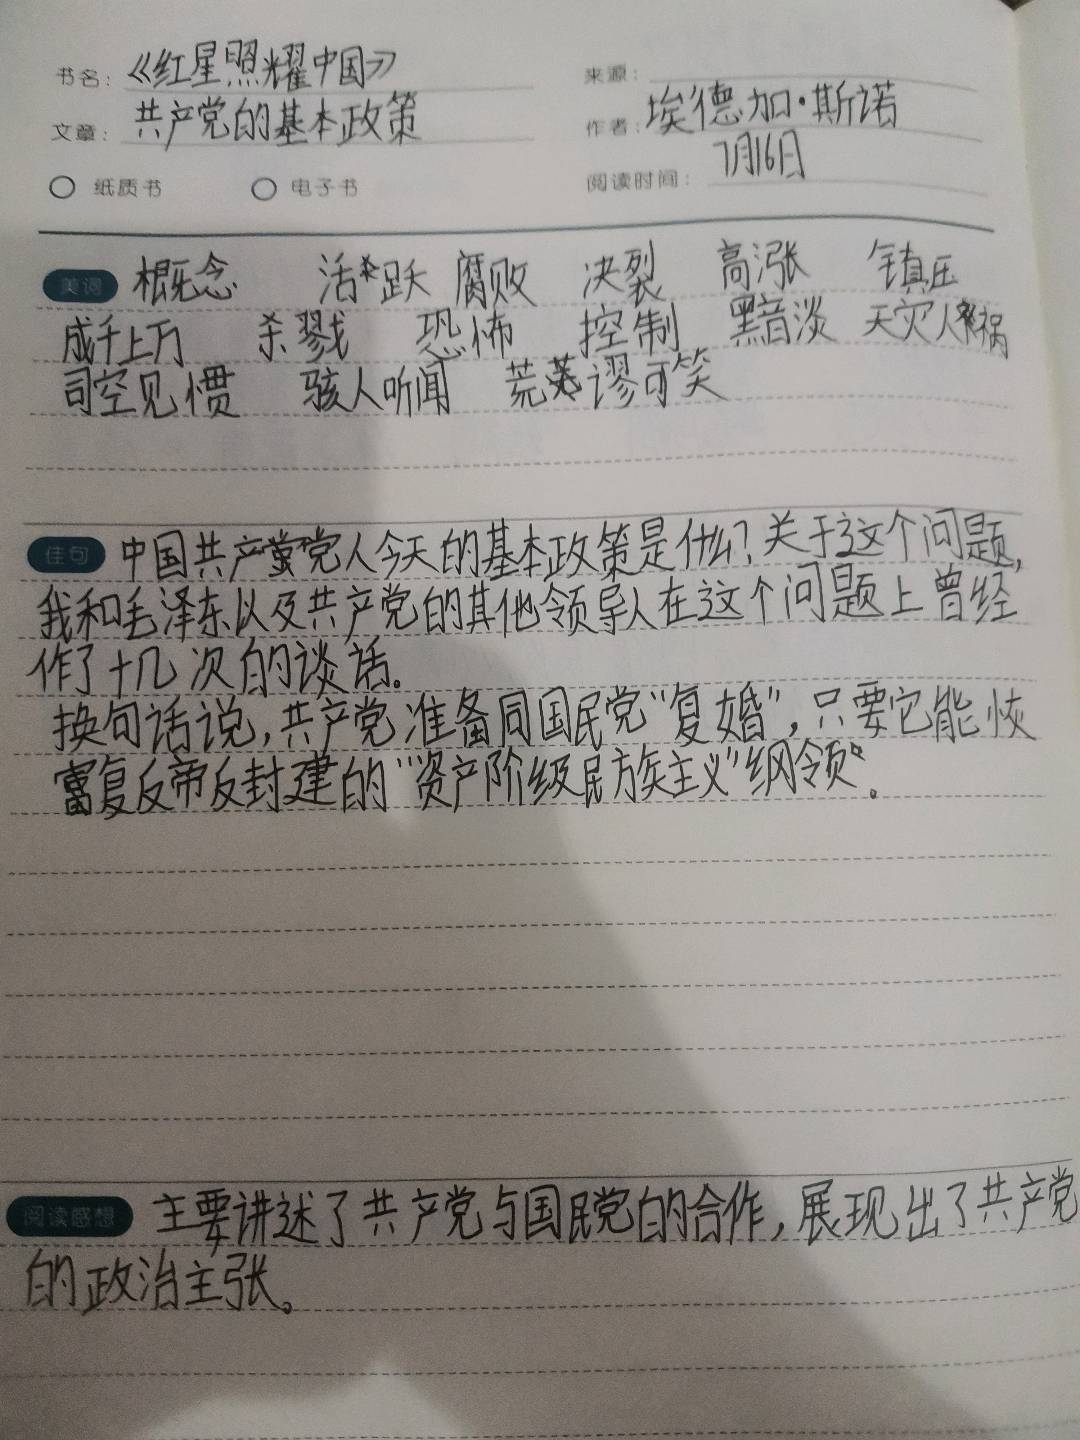 书名：《红星照耀中国》
来源：
文章：共产党的基本政策
作者：埃德加·斯诺
纸质书 电子书
阅读时间：7月16日
美词 概念 活跃 腐败 决裂 高涨 镇压
成千上万 杀戮 恐怖 控制 黯淡 天灾人祸
司空见惯 骇人听闻 荒谬可笑
佳句 中国共产党人今天的基本政策是什么?关于这个问题,
我和毛泽东以及共产党的其他领导人在这个问题上曾经
作了十几次的谈话。
换句话说,共产党准备同国民党“复婚”,只要它能恢
复反帝反封建的“资产阶级民族主义”纲领。
阅读感想 主要讲述了共产党与国民党的合作,展现出了共产党
的政治主张。